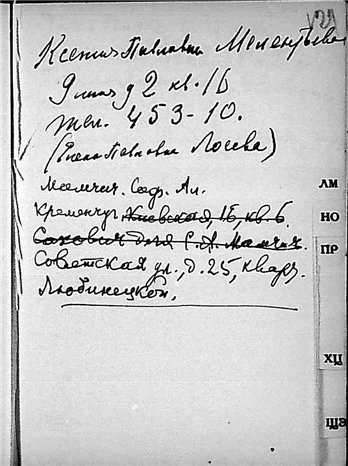 Ксения Павловна Мелентьева
9 линия д 2 кв. 16
тел. 453-10.
(Елена Павловна Лосева)
Мамчич. Софр. Ал.
Кременчуг Киевская, 15, кв. 6.
Сакович для С. А. Мамчич.
Советская ул., д. 25, кварт.
Любинецкой.
ЛМ
НО
ПР
ХЦ